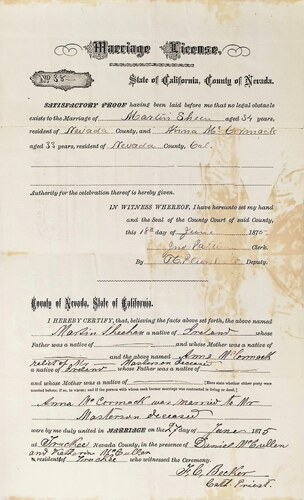 Marriage License.
No 88
State of California, County of Nevada.
SATISFACTORY PROOF having been laid before me that no legal obstacle
exists to the Marriage of Martin Sheen aged 34 years,
resident of Nevada County, and Anna McCormack
aged 38 years, resident of Nevada County, Cal.
Authority for the celebration thereof is hereby given.
IN WITNESS WHEREOF, I have hereunto set my hand
and the Seal of the County Court of said County,
this 18th day of June 1875
Clerk.
By Deputy.
County of Nevada, State of California.
I HEREBY CERTIFY, that, believing the facts above set forth, the above named
Martin Sheehan a native of Ireland whose
Father was a native of and whose Mother was a native of
and the above named Anna McCormack
relict of Mr Masterson deceased
a native of Ireland whose Father was a native of
and whose Mother was a native of
Anna McCormack was married to Mr
Masterson deceased
were by me duly united in MARRIAGE on the day of June 1875
at Truckee Nevada County, in the presence of Daniel McCullen
and McCullen
resident of Truckee who witnessed the Ceremony.
F. C. Becker
Cath. Priest.